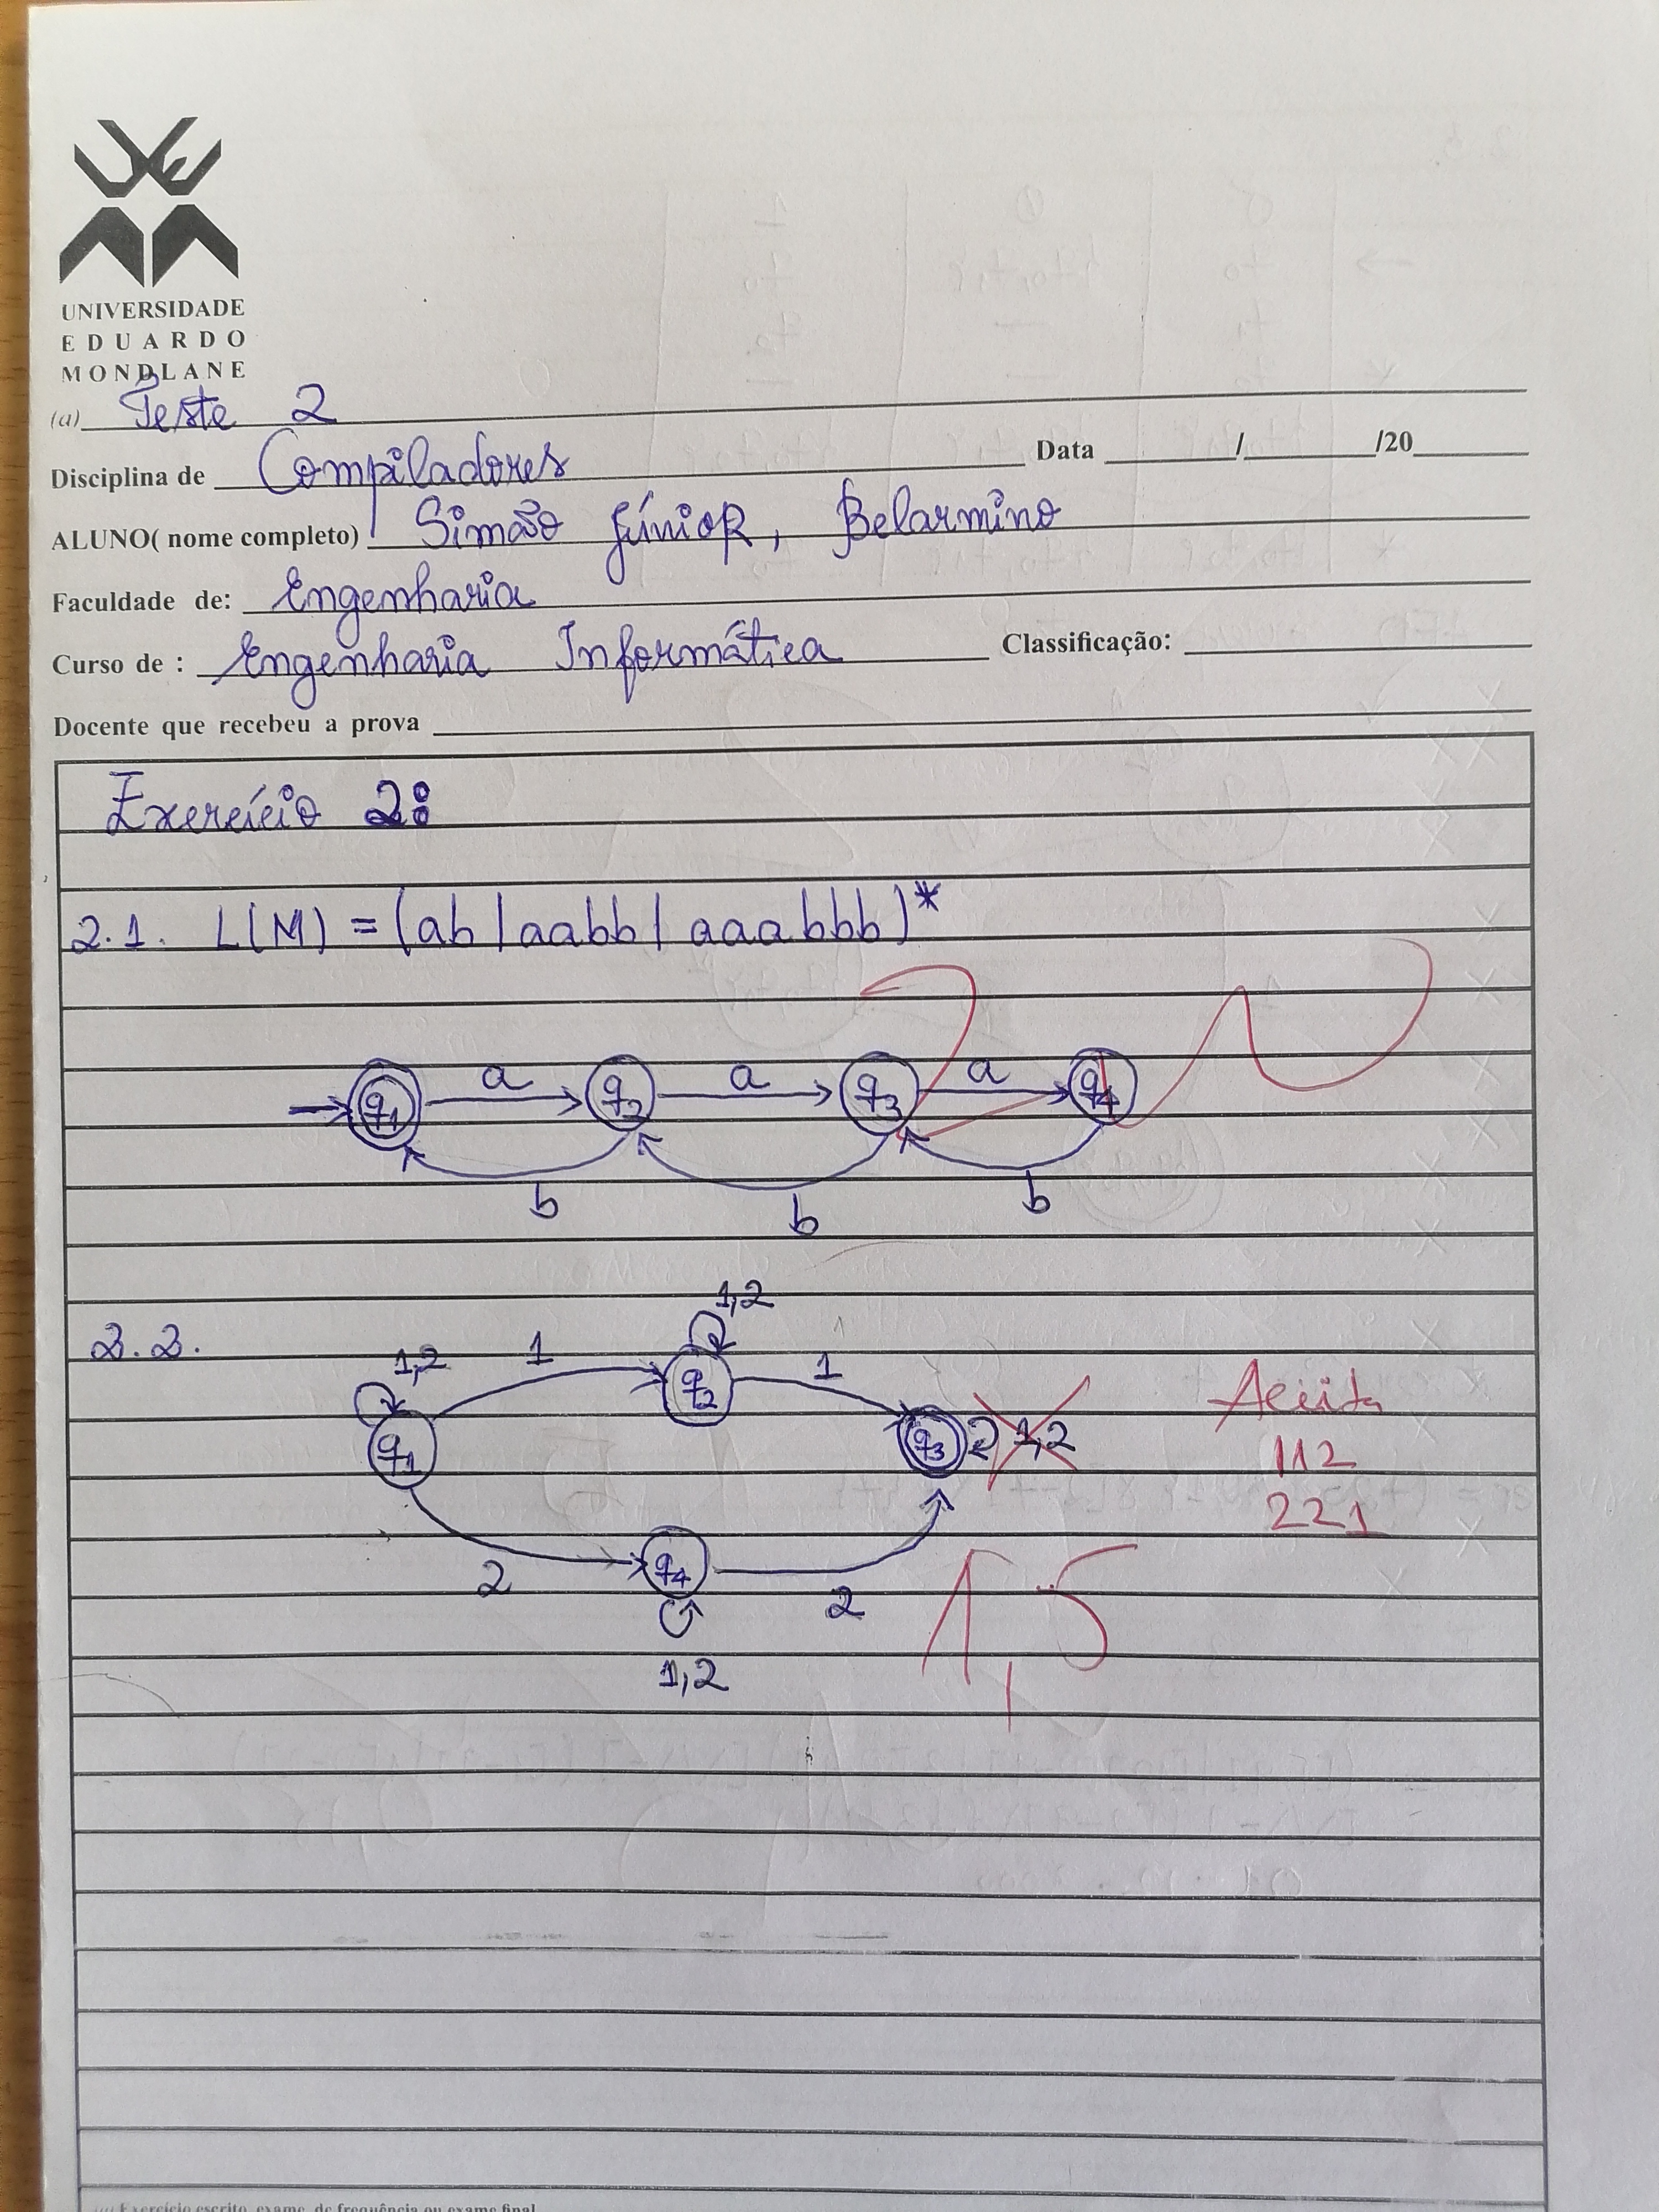 UNIVERSIDADE
EDUARDO
MONDLANE
(a) Teste 2
Disciplina de Compiladores Data / /20
ALUNO( nome completo) Simão Júnior, Belarmino
Faculdade de: Engenharia
Curso de : Engenharia Informática Classificação:
Docente que recebeu a prova
Exercício 2:
2.1. L(M) = (ab | aabb | aaabbb)*
q1 a q2 a q3 a q4
b b b
2.2.
1,2
1,2 1 q2 1
Aceita
q1 q3 1,2 112
221
2 q4 2 1,5
1,2
Exercício escrito, exame, de frequência ou exame final